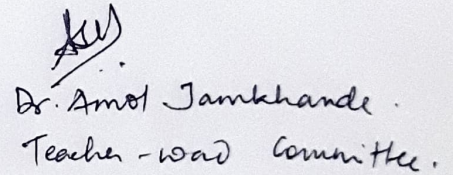 Dr. Amol Jamkhande.
Teacher - ward Committee.